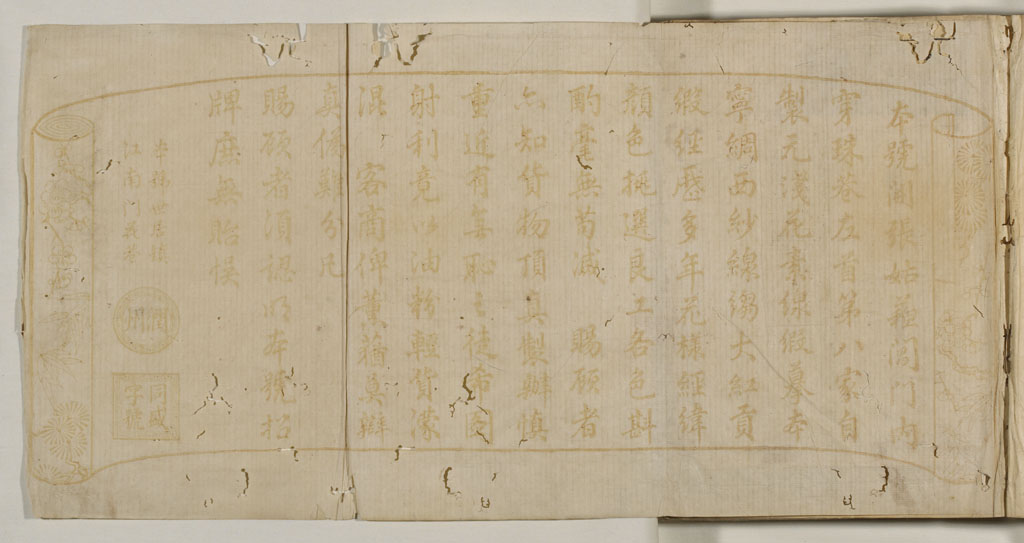 本號開張姑蘓閶門內
穿珠巷左首第八家自
製元淺花素線緞摹本
寧綢西紗線縐大紅貢
緞經歷多年花樣經緯
顏色挑選良工各色斟
酌毫無苟減 賜顧者
亦知貨物頂真製辦慎
重近有無恥之徒希圖
射利竟以油粉輕貨濛
混 客商俾薰蕕莫辯
真僞難分凡
賜顧者須認明本號招
牌庶無貽悞
本號世居鎮
江南門義巷
潤州
同盛
字號